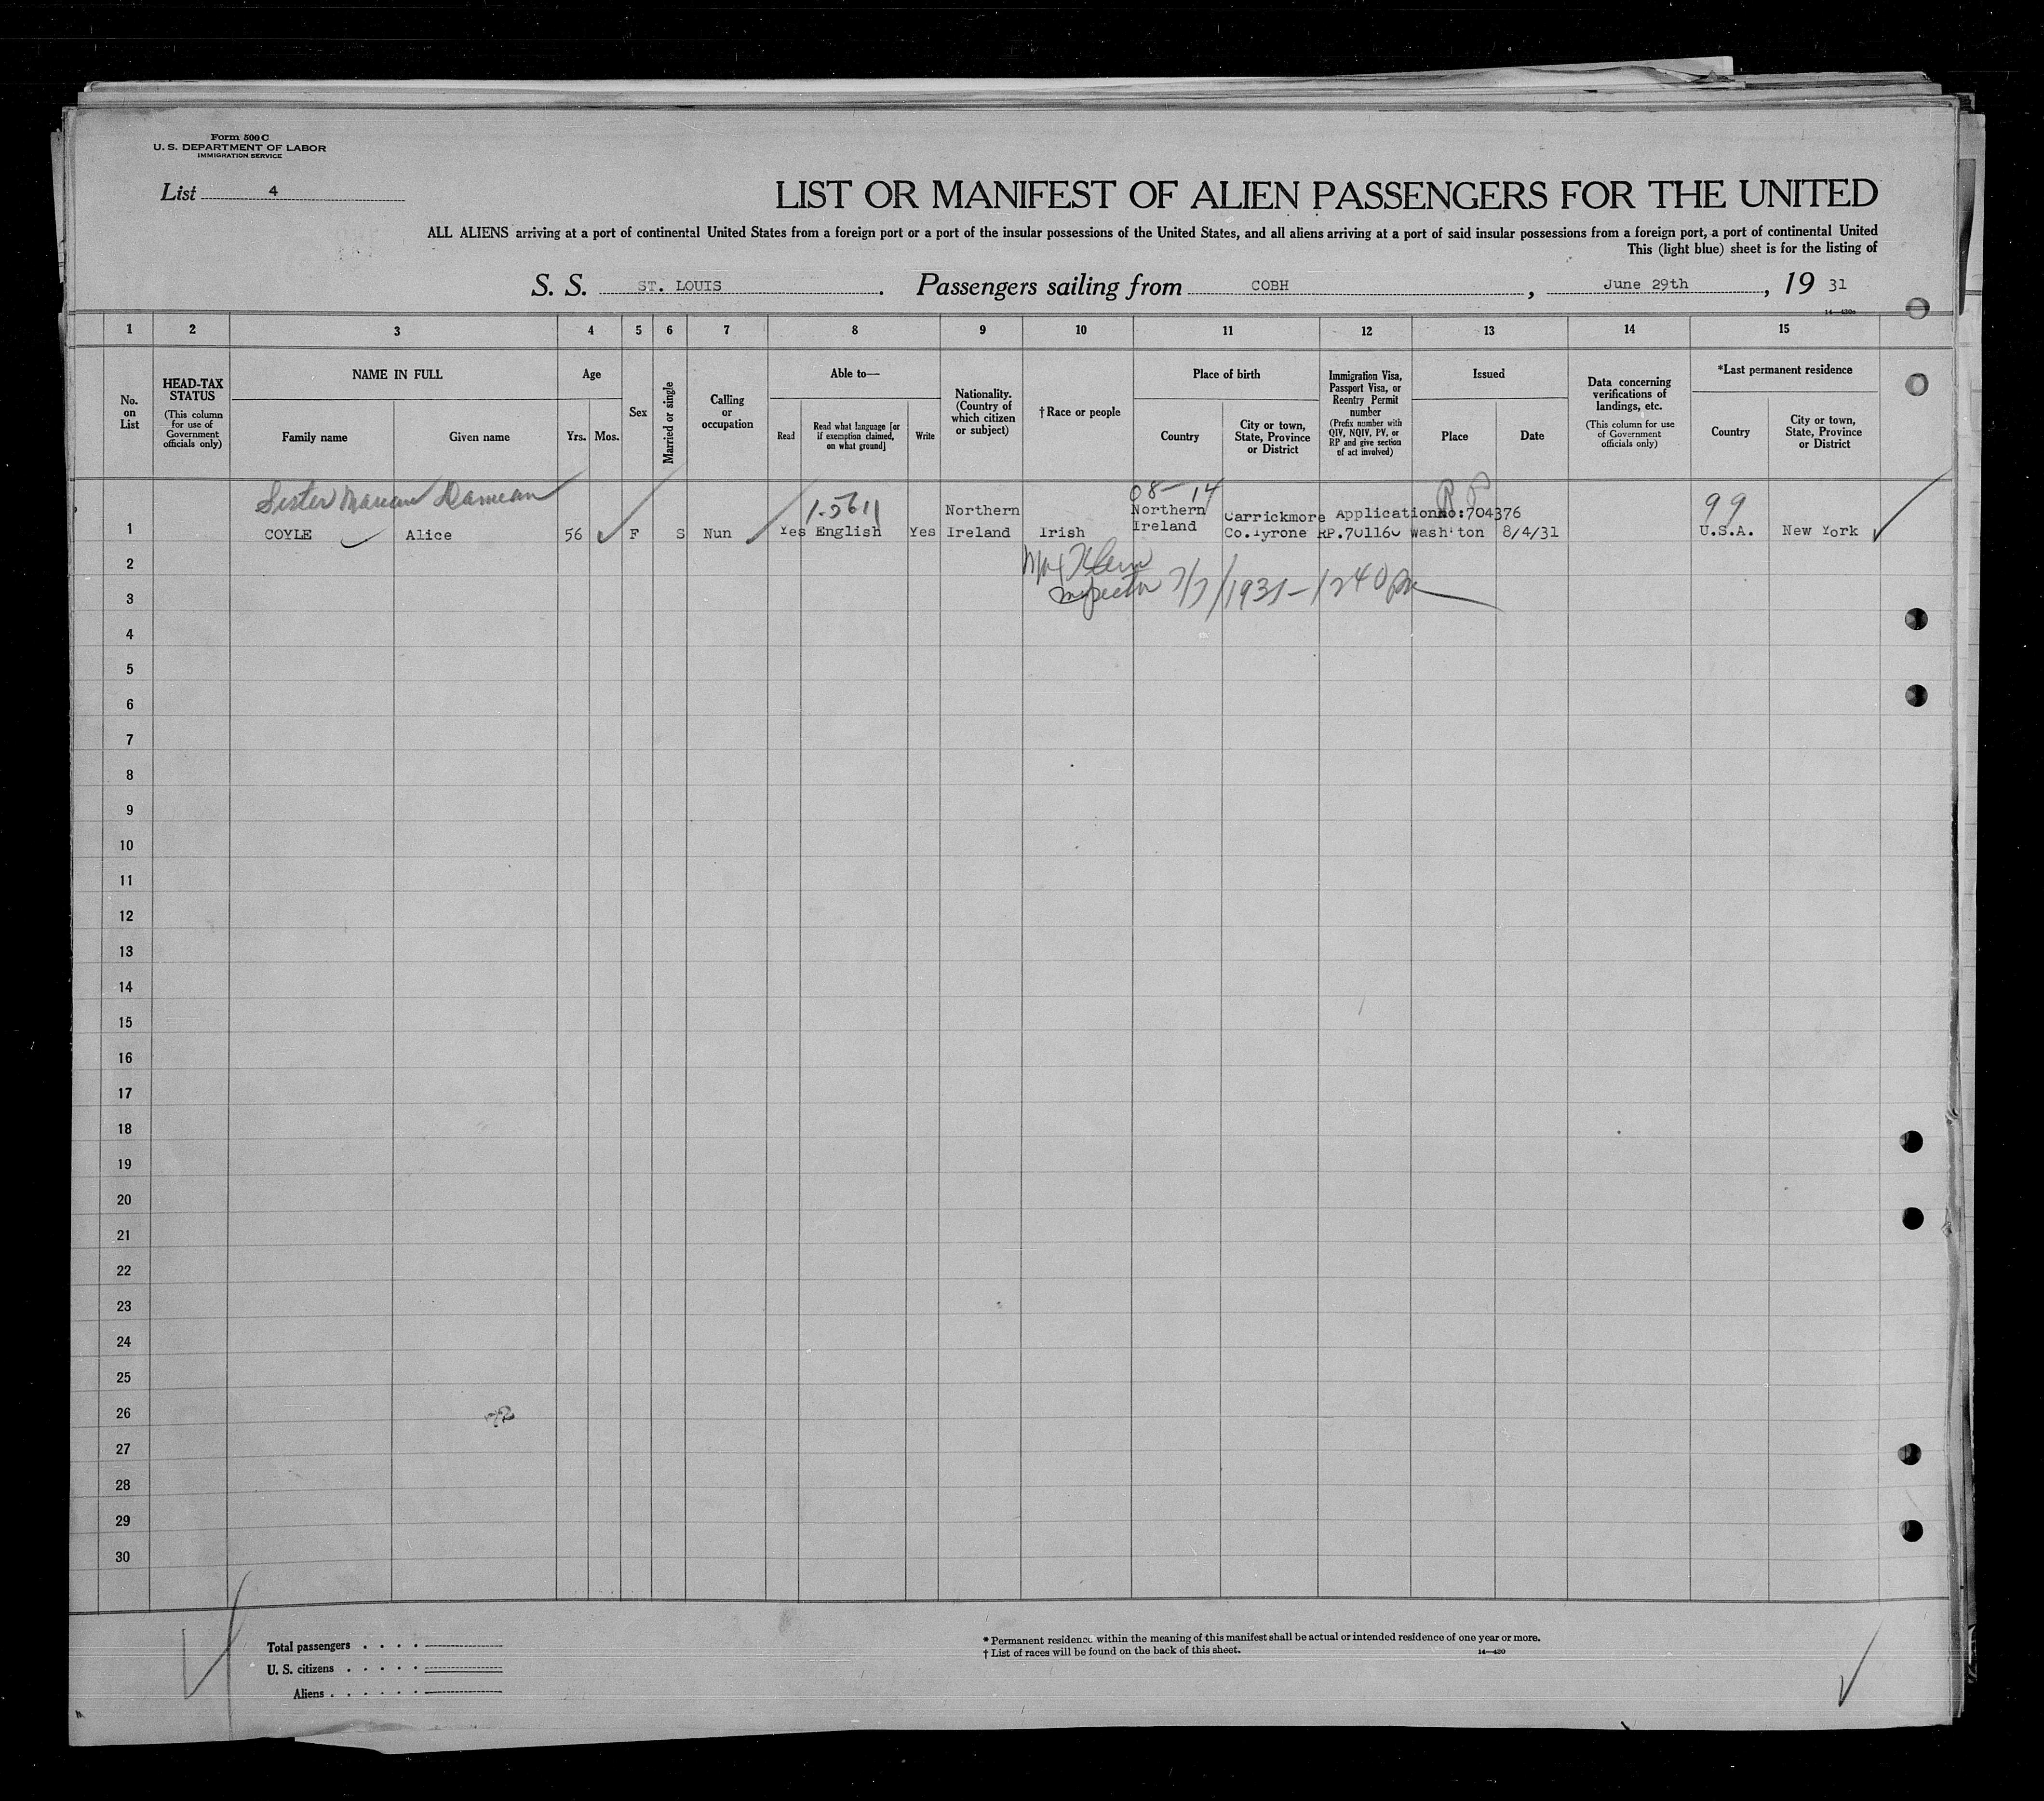 Form 500 C
U. S. DEPARTMENT OF LABOR
IMMIGRATION SERVICE
List 4
LIST OR MANIFEST OF ALIEN PASSENGERS FOR THE UNITED
ALL ALIENS arriving at a port of continental United States from a foreign port or a port of the insular possessions of the United States, and all aliens arriving at a port of said insular possessions from a foreign port, a port of continental United
This (light blue) sheet is for the listing of
S. S. ST. LOUIS . Passengers sailing from COBH , June 29th , 19 31
1 2 3 4 5 6 7 8 9 10 11 12 13 14 15
No. on List
HEAD-TAX STATUS
(This column for use of Government officials only)
NAME IN FULL
Family name Given name
Age
Yrs. Mos.
Sex
Married or single
Calling or occupation
Able to—
Read
Read what language [or if exemption claimed, on what ground]
Write
Nationality. (Country of which citizen or subject)
† Race or people
Place of birth
Country
City or town, State, Province or District
Immigration Visa, Passport Visa, or Reentry Permit number
(Prefix number with QIV, NQIV, PV, or RP and give section of act involved)
Issued
Place Date
Data concerning verifications of landings, etc.
(This column for use of Government officials only)
*Last permanent residence
Country
City or town, State, Province or District
Sister
08—14
R P
99
Northern Northern Carrickmore Application No:704376
1 COYLE Alice 56 F S Nun Yes English Yes Ireland Irish Ireland Co.Tyrone RP.701160 Wash'ton 8/4/31 U.S.A. New York
2
Inspector 7/7/1931 — 1240 pm
3
4
5
6
7
8
9
10
11
12
13
14
15
16
17
18
19
20
21
22
23
24
25
26
27
28
29
30
Total passengers . . . .
U. S. citizens . . . . .
Aliens . . . . . .
* Permanent residence within the meaning of this manifest shall be actual or intended residence of one year or more.
† List of races will be found on the back of this sheet.
14—420